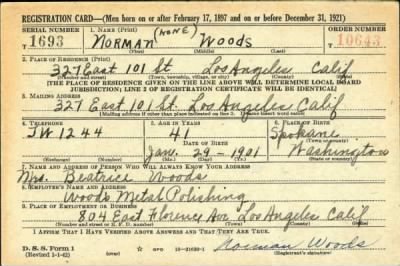 REGISTRATION CARD—(Men born on or after February 17, 1897 and on or before December 31, 1921)
SERIAL NUMBER 1. NAME (Print) ORDER NUMBER
T 1693 NORMAN (NONE) WOODS T 10643
(First) (Middle) (Last)
2. PLACE OF RESIDENCE (Print)
327 East 101 St. Los Angeles Calif
(Number and street) (Town, township, village, or city) (County) (State)
[THE PLACE OF RESIDENCE GIVEN ON THE LINE ABOVE WILL DETERMINE LOCAL BOARD
JURISDICTION; LINE 2 OF REGISTRATION CERTIFICATE WILL BE IDENTICAL]
3. MAILING ADDRESS
327 East 101 St. Los Angeles Calif
[Mailing address if other than place indicated on line 2. If same insert word same]
4. TELEPHONE 5. AGE IN YEARS 6. PLACE OF BIRTH
JW 1244 41 Spokane
DATE OF BIRTH (Town or county)
Jan. 29 - 1901 Washington
(Exchange) (Number) (Mo.) (Day) (Yr.) (State or country)
7. NAME AND ADDRESS OF PERSON WHO WILL ALWAYS KNOW YOUR ADDRESS
Mrs. Beatrice Woods
8. EMPLOYER'S NAME AND ADDRESS
Woods Metal Polishing
9. PLACE OF EMPLOYMENT OR BUSINESS
804 East Florence Ave Los Angeles Calif
(Number and street or R. F. D. number) (Town) (County) (State)
I AFFIRM THAT I HAVE VERIFIED ABOVE ANSWERS AND THAT THEY ARE TRUE.
D. S. S. Form 1 GPO 16—21630-1 Norman Woods
(Revised 1-1-42) (Registrant's signature)